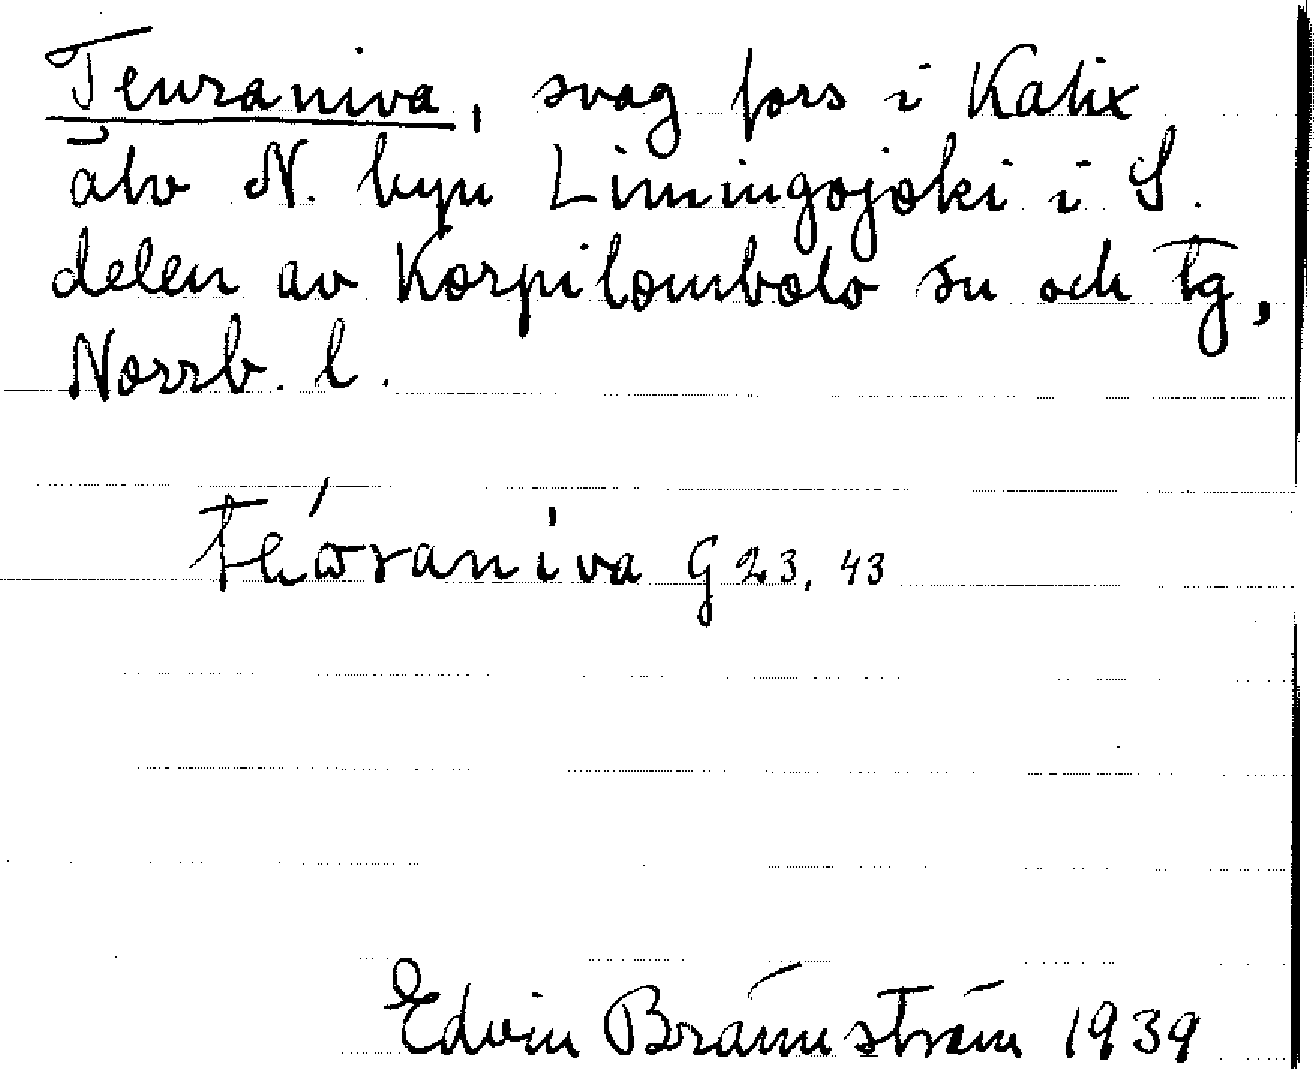 Teuraniva, svag fors i Kalix
älv N. byn Limingojoki i S.
delen av Korpilombolo sn och tg,
Norrb. l.
G 23, 43
Edvin Brännström 1939